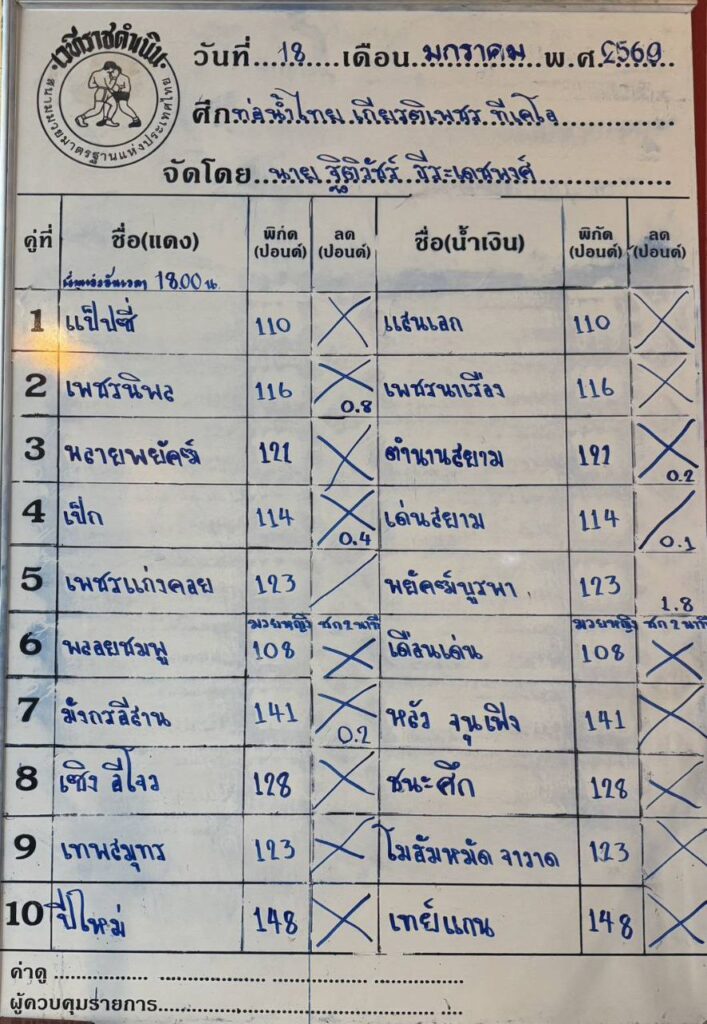 เวทีราชดำเนิน
สนามมวยมาตรฐานแห่งประเทศไทย
วันที่...18.....เดือน..มกราคม...พ.ศ.2569
ศึกท่อน้ำไทย เกียรติเพชร ทีเคโอ
จัดโดย...นาย ฐิติวัชร์ ธีระเดชพงศ์
คู่ที่ ชื่อ(แดง) พิกัด (ปอนด์) ลด (ปอนด์) ชื่อ(น้ำเงิน) พิกัด (ปอนด์) ลด (ปอนด์)
18.00 น.
1 แป๊ปซี่ 110 แสนเอก 110
2 เพชรนิพล 116 0.8 เพชรนาเรือง 116
3 พลายพยัคฆ์ 121 ตำนานสยาม 121 0.2
4 เป๊ก 114 0.4 เด่นสยาม 114 0.1
5 เพชรแก่งคอย 123 พยัคฆ์บูรพา 123 1.8
มวยหญิง ชก 2 นาที มวยหญิง ชก 2 นาที
6 พลอยชมพู 108 เดือนเด่น 108
7 มังกรอีสาน 141 0.2 หลัว จุนเฟิง 141
8 เซิง อีโจว 128 ชนะศึก 128
9 เทพสมุทร 123 โมฮัมหมัด จาวาด 123
10 ปีใหม่ 148 เทย์แกน 148
ค่าดู
ผู้ควบคุมรายการ